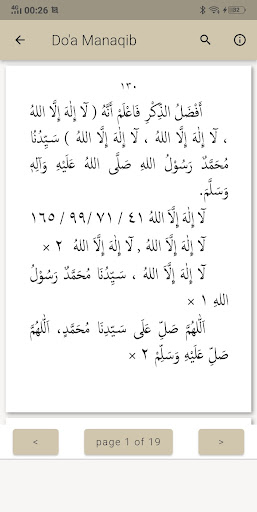 4G 00:26 52
Do'a Manaqib
١٣٠
أَفْضَلُ الذِّكْرِ فَاعْلَمْ أَنَّهُ ( لَآ إِلٰهَ إِلَّا اللهُ
، لَآ إِلٰهَ إِلَّا اللهُ ، لَآ إِلٰهَ إِلَّا اللهُ ) سَيِّدُنَا
مُحَمَّدٌ رَسُوْلُ اللهِ صَلَّى اللهُ عَلَيْهِ وَآلِهِ
وَسَلَّمَ.
لَآ إِلٰهَ إِلَّا اللهُ ٤١ / ٧١ / ٩٩ / ١٦٥
لَآ إِلٰهَ إِلَّا اللهُ , لَآ إِلٰهَ إِلَّا اللهُ ٢ ×
لَآ إِلٰهَ إِلَّا اللهُ ، سَيِّدُنَا مُحَمَّدٌ رَسُوْلُ
اللهِ ١ ×
اَللّٰهُمَّ صَلِّ عَلَى سَيِّدِنَا مُحَمَّدٍ، اَللّٰهُمَّ
صَلِّ عَلَيْهِ وَسَلِّمْ ٢ ×
< page 1 of 19 >